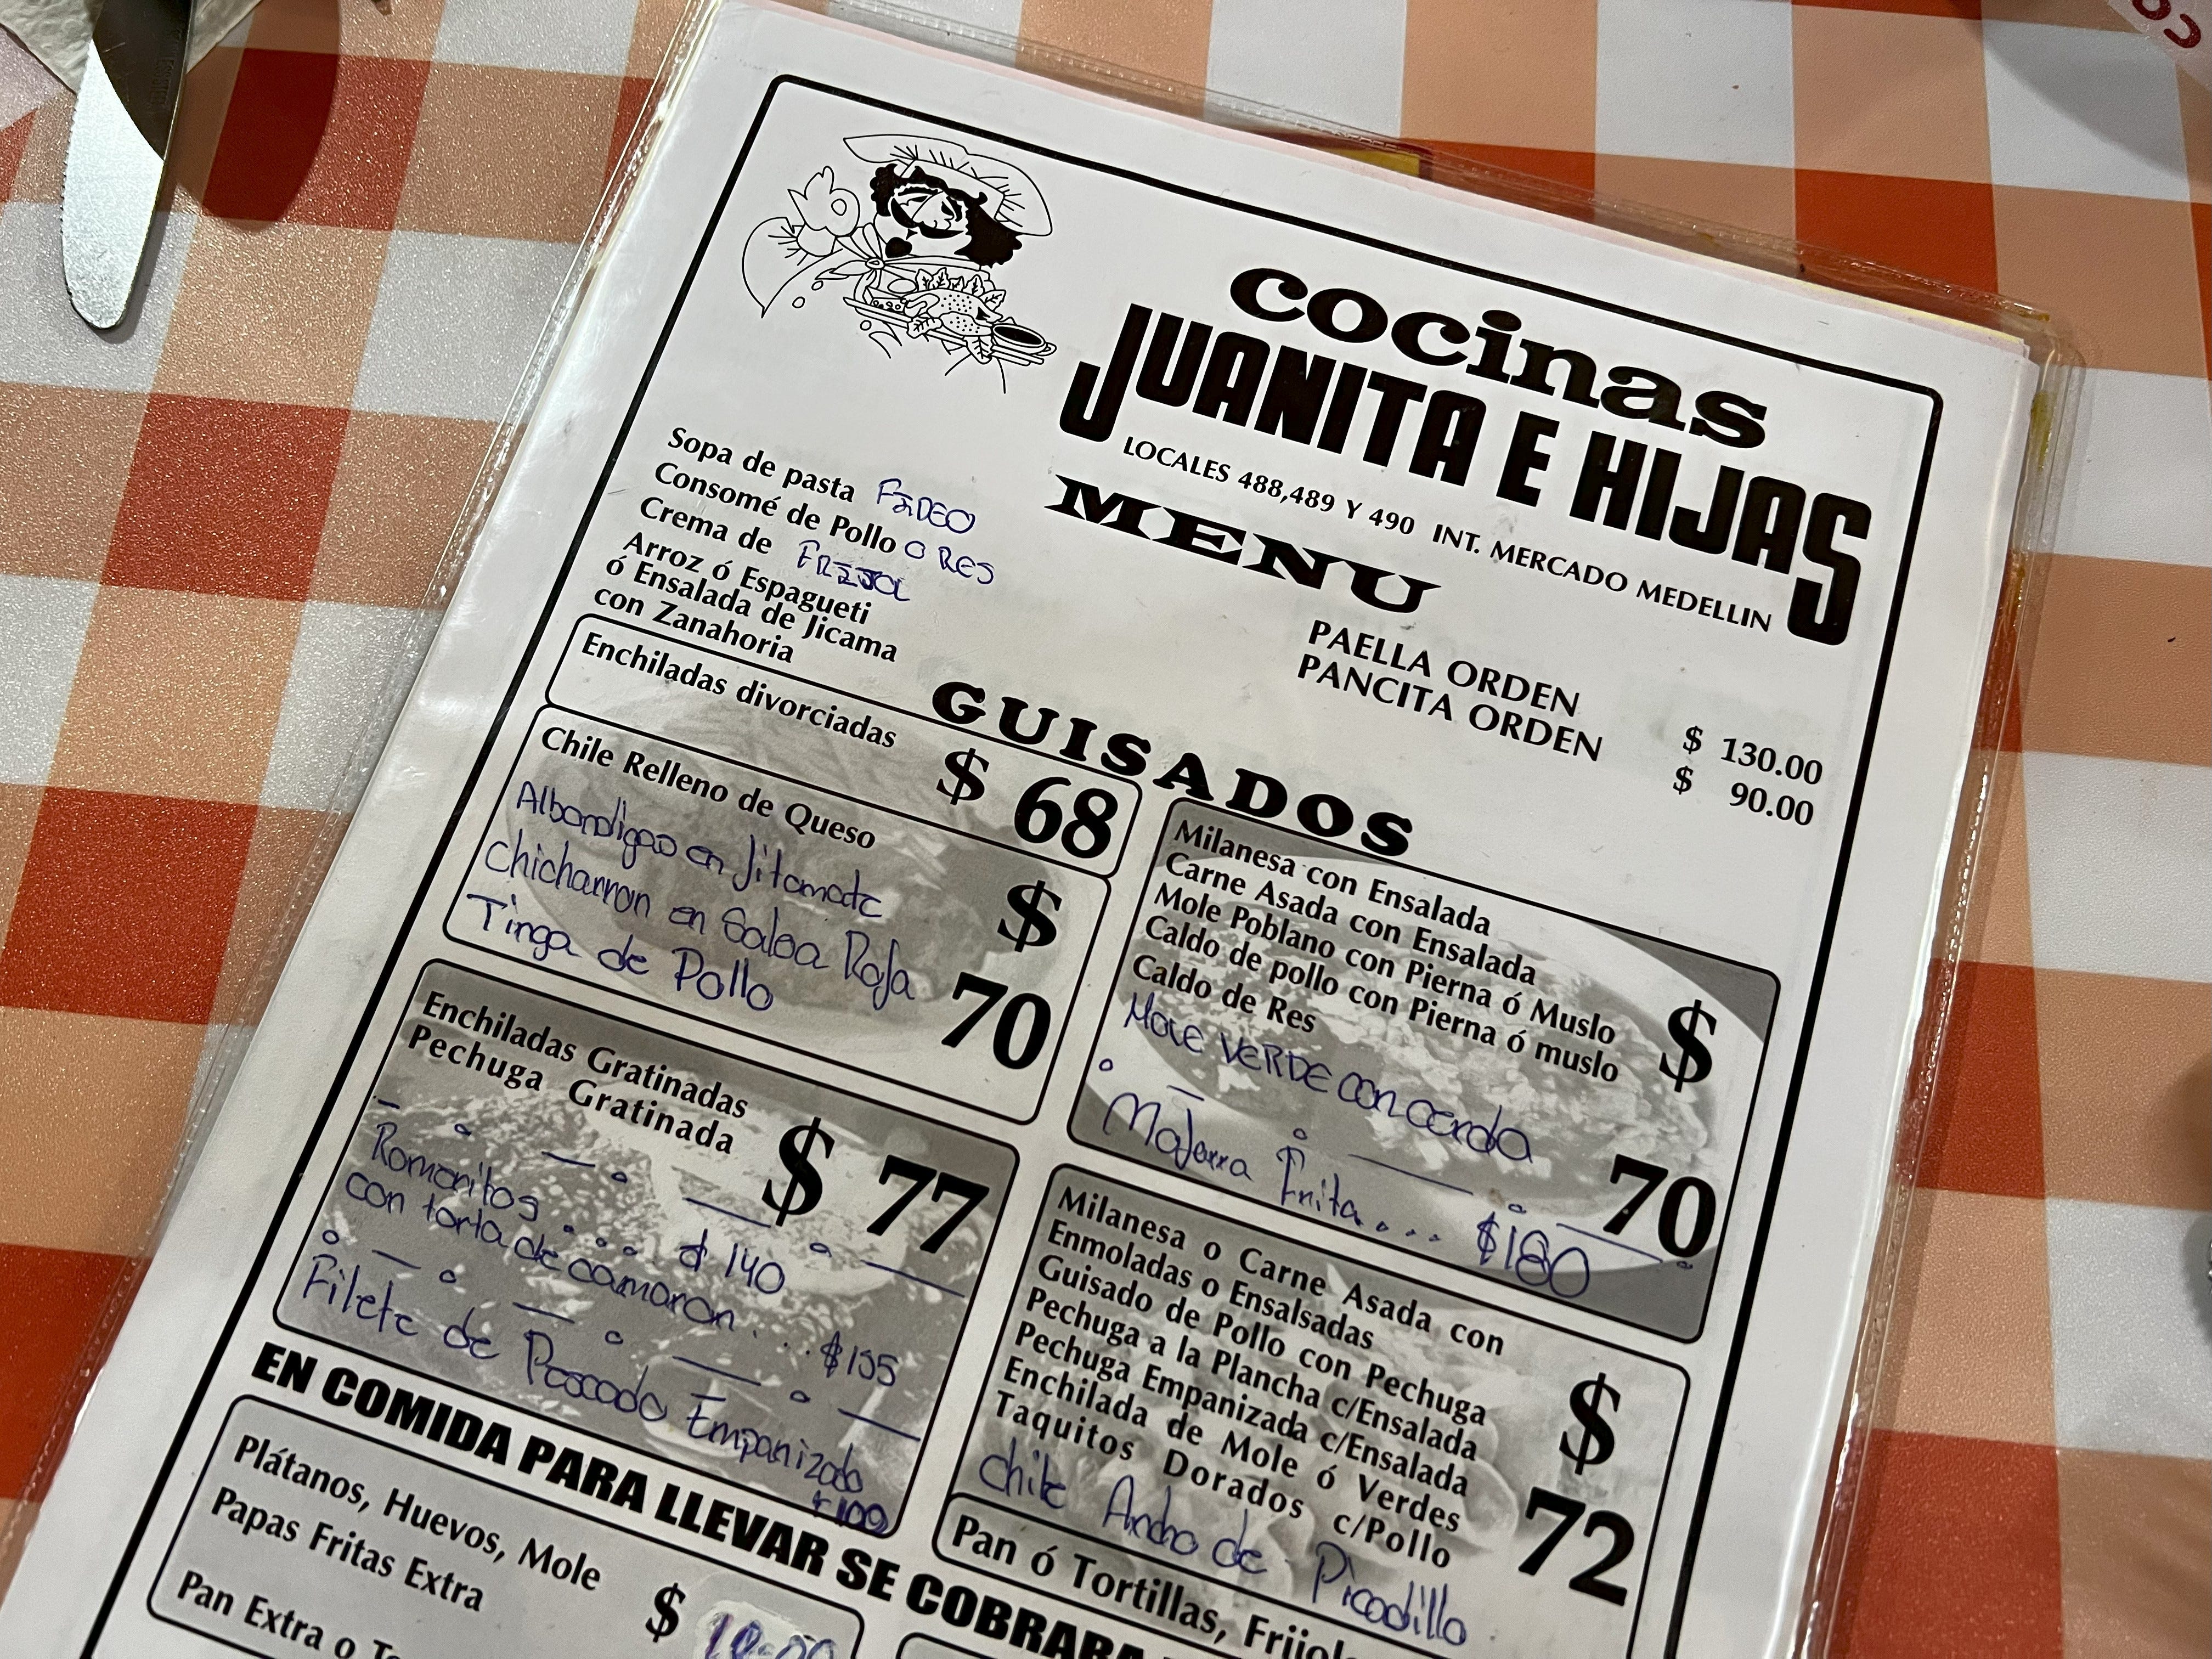 cocinas
JUANITA E HIJAS
LOCALES 488,489 Y 490 INT. MERCADO MEDELLIN
MENU
Sopa de pasta FIDEO
Consomé de Pollo O RES
Crema de FRIJOL
Arroz ó Espagueti
ó Ensalada de Jicama
con Zanahoria
PAELLA ORDEN $ 130.00
PANCITA ORDEN $ 90.00
GUISADOS
Enchiladas divorciadas $ 68
Chile Relleno de Queso
Albondigas en Jitomate
Chicharron en Salsa Roja
Tinga de Pollo
$ 70
Milanesa con Ensalada
Carne Asada con Ensalada
Mole Poblano con Pierna ó Muslo
Caldo de pollo con Pierna ó muslo
Caldo de Res
MOLE VERDE con cerdo
$ 70
Mojarra Frita... $180
Enchiladas Gratinadas
Pechuga Gratinada
$ 77
Romeritos... $140
con torta de camaron... $155
Filete de Pescado Empanizado
$100
Milanesa o Carne Asada con
Enmoladas o Ensalsadas
Guisado de Pollo con Pechuga
Pechuga a la Plancha c/Ensalada
Pechuga Empanizada c/Ensalada
Enchilada de Mole ó Verdes
Taquitos Dorados c/Pollo
Chile Ancho de Picadillo
$ 72
Pan ó Tortillas,
EN COMIDA PARA LLEVAR SE COBRARA
Plátanos, Huevos, Mole
Papas Fritas Extra
$ 10.00
Pan Extra o